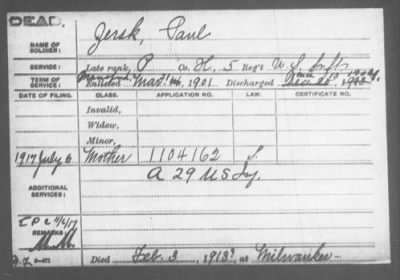 DEAD.
NAME OF SOLDIER: Jersk, Paul
SERVICE: Late rank, P Co. H, 5 Reg't U S Inft
TERM OF SERVICE: Enlisted Mar 14, 1901. Discharged
DATE OF FILING. CLASS. APPLICATION NO. LAW. CERTIFICATE NO.
Invalid,
Widow,
Minor,
1917 July 6 Mother 1104162 S.
ADDITIONAL SERVICES: A 29 US Iy.
REMARKS:
Died Feb 3, 1913, at Milwaukee